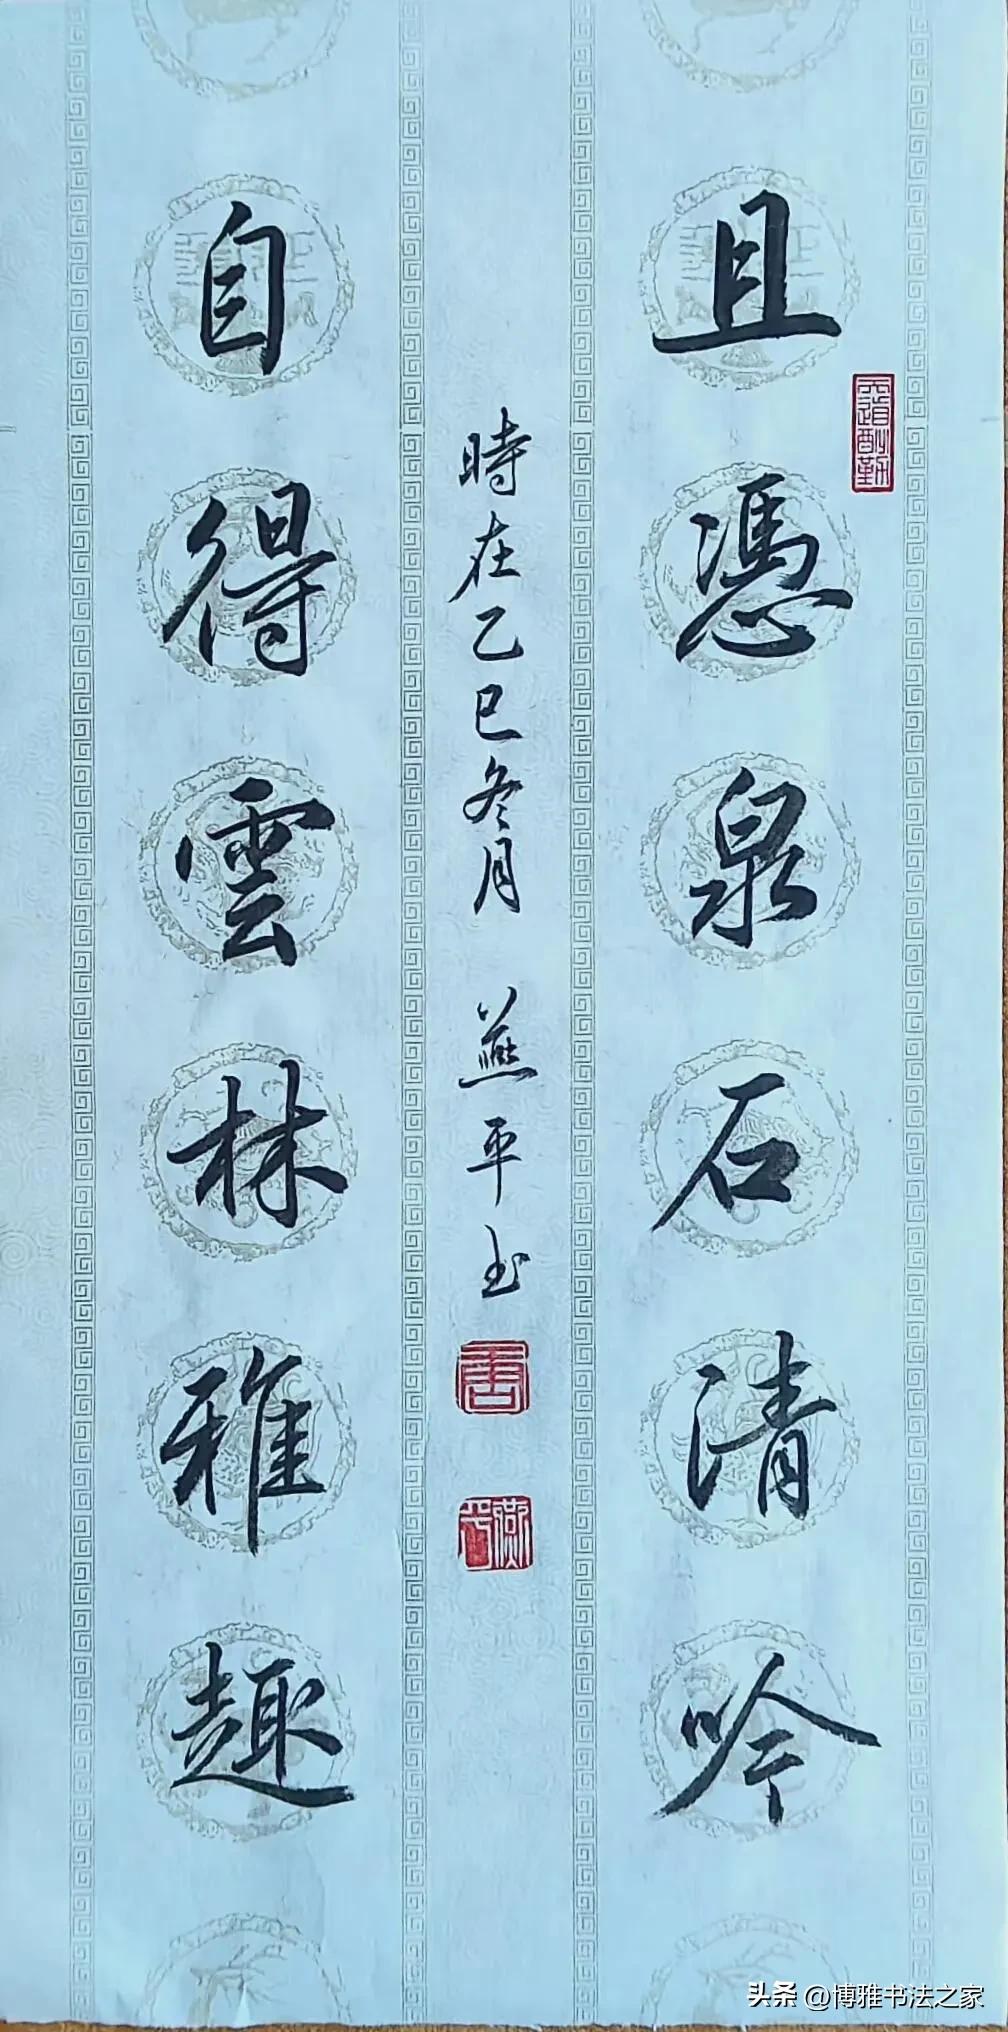 且憑泉石清吟
天道酬勤
自得雲林雅趣
時在乙巳冬月 燕平书
头条 @博雅书法之家